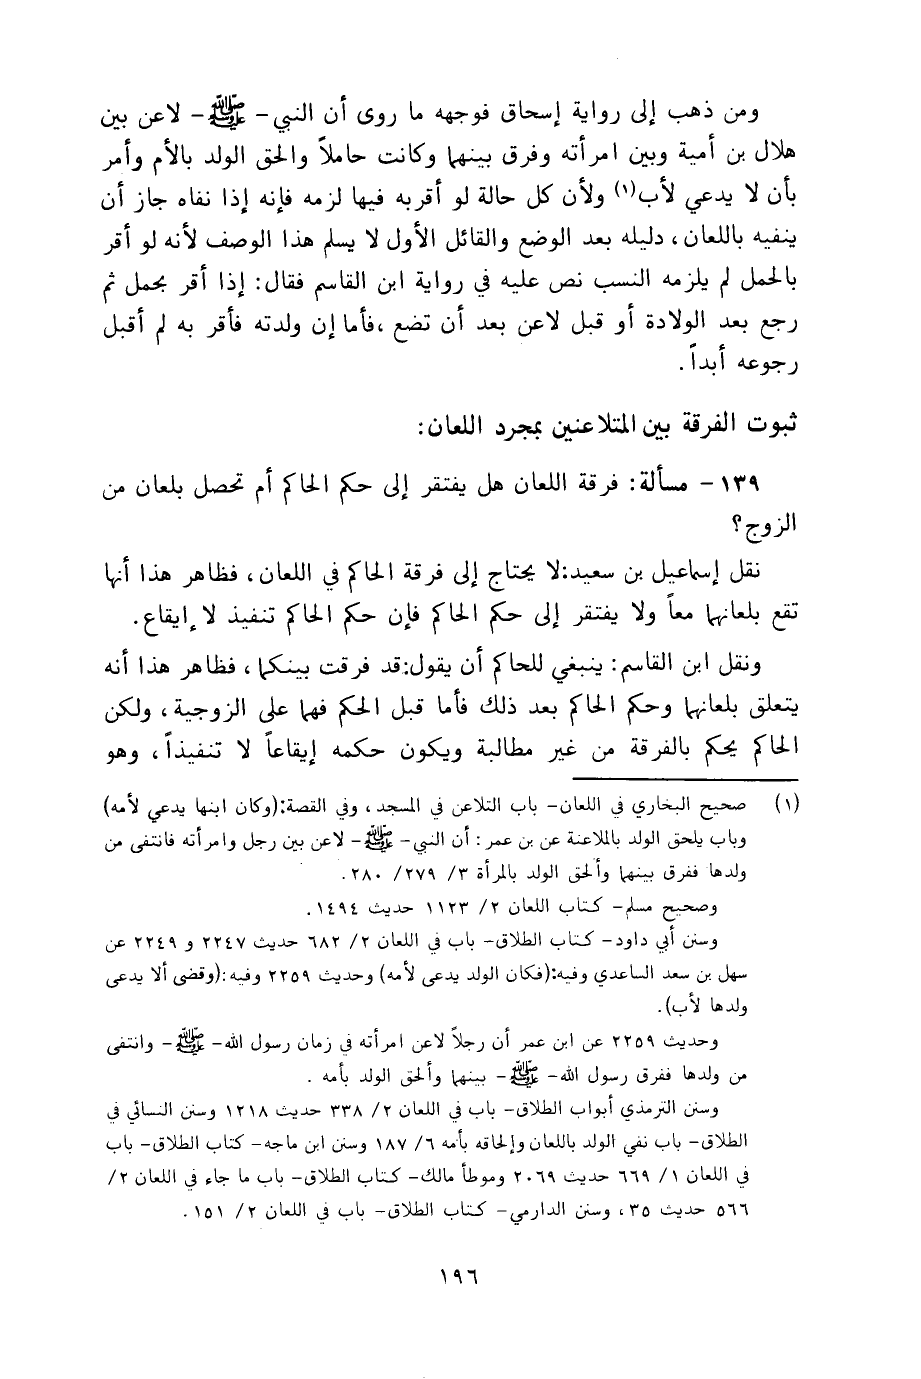 ومن ذهب إلى رواية إسحاق فوجهه ما روى أن النبي - ﷺ - لاعن بين
هلال بن أمية وبين امرأته وفرق بينهما وكانت حاملاً والحق الولد بالأم وأمر
بأن لا يدعي لأب(١) ولأن كل حالة لو أقربه فيها لزمه فإنه إذا نفاه جاز أن
ينفيه باللعان، دليله بعد الوضع والقائل الأول لا يسلم هذا الوصف لأنه لو أقر
بالحمل لم يلزمه النسب نص عليه في رواية ابن القاسم فقال: إذا أقر بحمل ثم
رجع بعد الولادة أو قبل لاعن بعد أن تضع ،فأما إن ولدته فأقر به لم أقبل
رجوعه أبداً.
ثبوت الفرقة بين المتلاعنين بمجرد اللعان:
١٣٩ - مسألة: فرقة اللعان هل يفتقر إلى حكم الحاكم أم تحصل بلعان من
الزوج؟
نقل إسماعيل بن سعيد:لا يحتاج إلى فرقة الحاكم في اللعان، فظاهر هذا أنها
تقع بلعانهما معاً ولا يفتقر إلى حكم الحاكم فإن حكم الحاكم تنفيذ لا إيقاع.
ونقل ابن القاسم: ينبغي للحاكم أن يقول:قد فرقت بينكما، فظاهر هذا أنه
يتعلق بلعانهما وحكم الحاكم بعد ذلك فأما قبل الحكم فهما على الزوجية، ولكن
الحاكم يحكم بالفرقة من غير مطالبة ويكون حكمه إيقاعاً لا تنفيذاً، وهو
(١) صحيح البخاري في اللعان- باب التلاعن في المسجد، وفي القصة:(وكان ابنها يدعي لأمه)
وباب يلحق الولد بالملاعنة عن بن عمر: أن النبي- ﷺ- لاعن بين رجل وامرأته فانتفى من
ولدها ففرق بينهما وألحق الولد بالمرأة ٣/ ٢٧٩/ ٢٨٠.
وصحيح مسلم- كتاب اللعان ٢/ ١١٢٣ حديث ١٤٩٤.
وسنن أبي داود- كتاب الطلاق- باب في اللعان ٢/ ٦٨٢ حديث ٢٢٤٧ و ٢٢٤٩ عن
سهل بن سعد الساعدي وفيه:(فكان الولد يدعى لأمه) وحديث ٢٢٥٩ وفيه:(وقضى ألا يدعى
ولدها لأب).
وحديث ٢٢٥٩ عن ابن عمر أن رجلاً لاعن امرأته في زمان رسول الله- ﷺ- وانتفى
من ولدها ففرق رسول الله- ﷺ- بينهما وألحق الولد بأمه .
وسنن الترمذي أبواب الطلاق- باب في اللعان ٢/ ٣٣٨ حديث ١٢١٨ وسنن النسائي في
الطلاق- باب نفي الولد باللعان وإلحاقه بأمه ٦/ ١٨٧ وسنن ابن ماجه- كتاب الطلاق- باب
في اللعان ١/ ٦٦٩ حديث ٢٠٦٩ وموطأ مالك- كتاب الطلاق- باب ما جاء في اللعان ٢/
٥٦٦ حديث ٣٥، وسنن الدارمي- كتاب الطلاق- باب في اللعان ٢/ ١٥١.
١٩٦